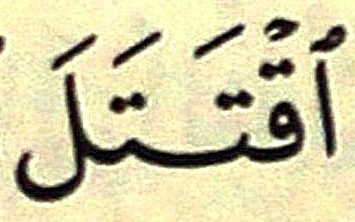 اُقْتَتَلَ